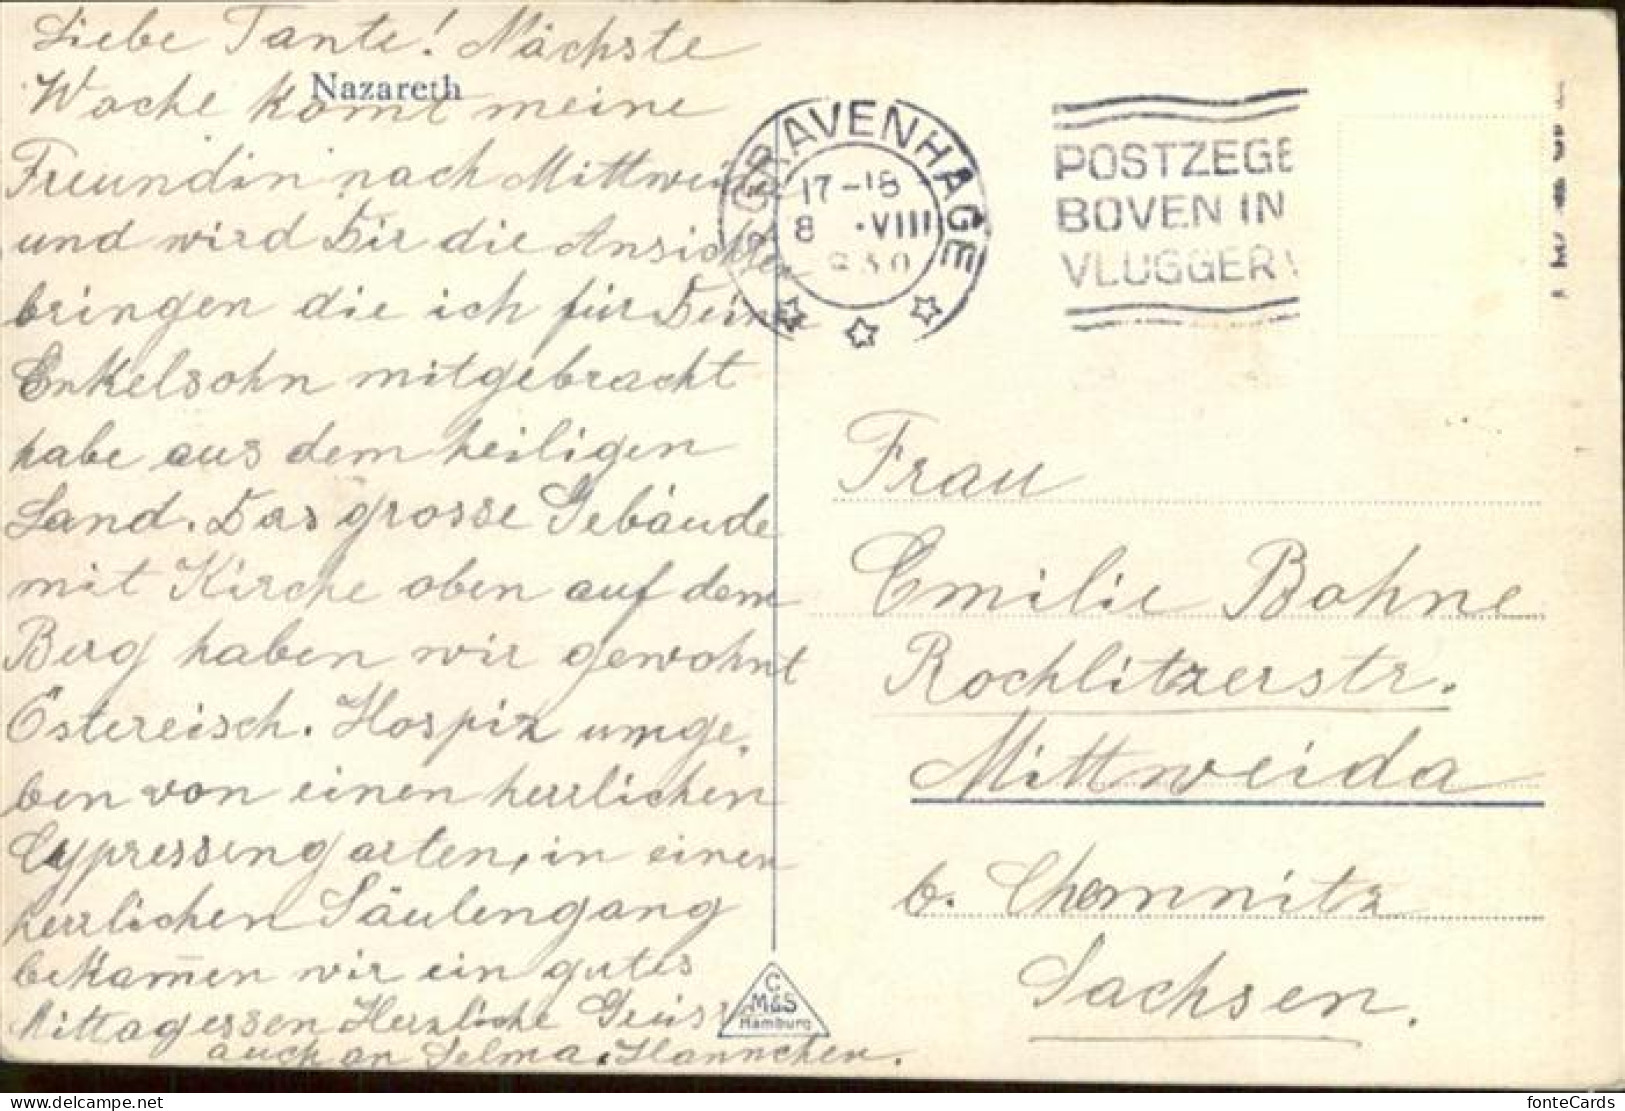 Liebe Tante! Nächste
Nazareth
Woche komt meine
Freundin nach Mittweida
und wird Dir die Ansichten
bringen die ich für Deine
Enkelsohn mitgebracht
habe aus dem heiligen
Land. Das grosse Gebäude
mit Kirche oben auf dem
Berg haben wir gewohnt
Östereisch. Hospiz umge,
ben von einen herrlichen
Cypressengarten, in einen
herrlichen Säulengang
bekamen wir ein gutes
Mittagessen Herzliche Grüsse
auch an Selma. Hannchen.
'S GRAVENHAGE
17-18
8 .VIII
1930
POSTZEGE
BOVEN IN
VLUGGER
Frau
Emilie Bohne
Rochlitzerstr.
Mittweida
b. Chemnitz
Sachsen.
C
M&S
Hamburg
delcampe.net
fonteCards